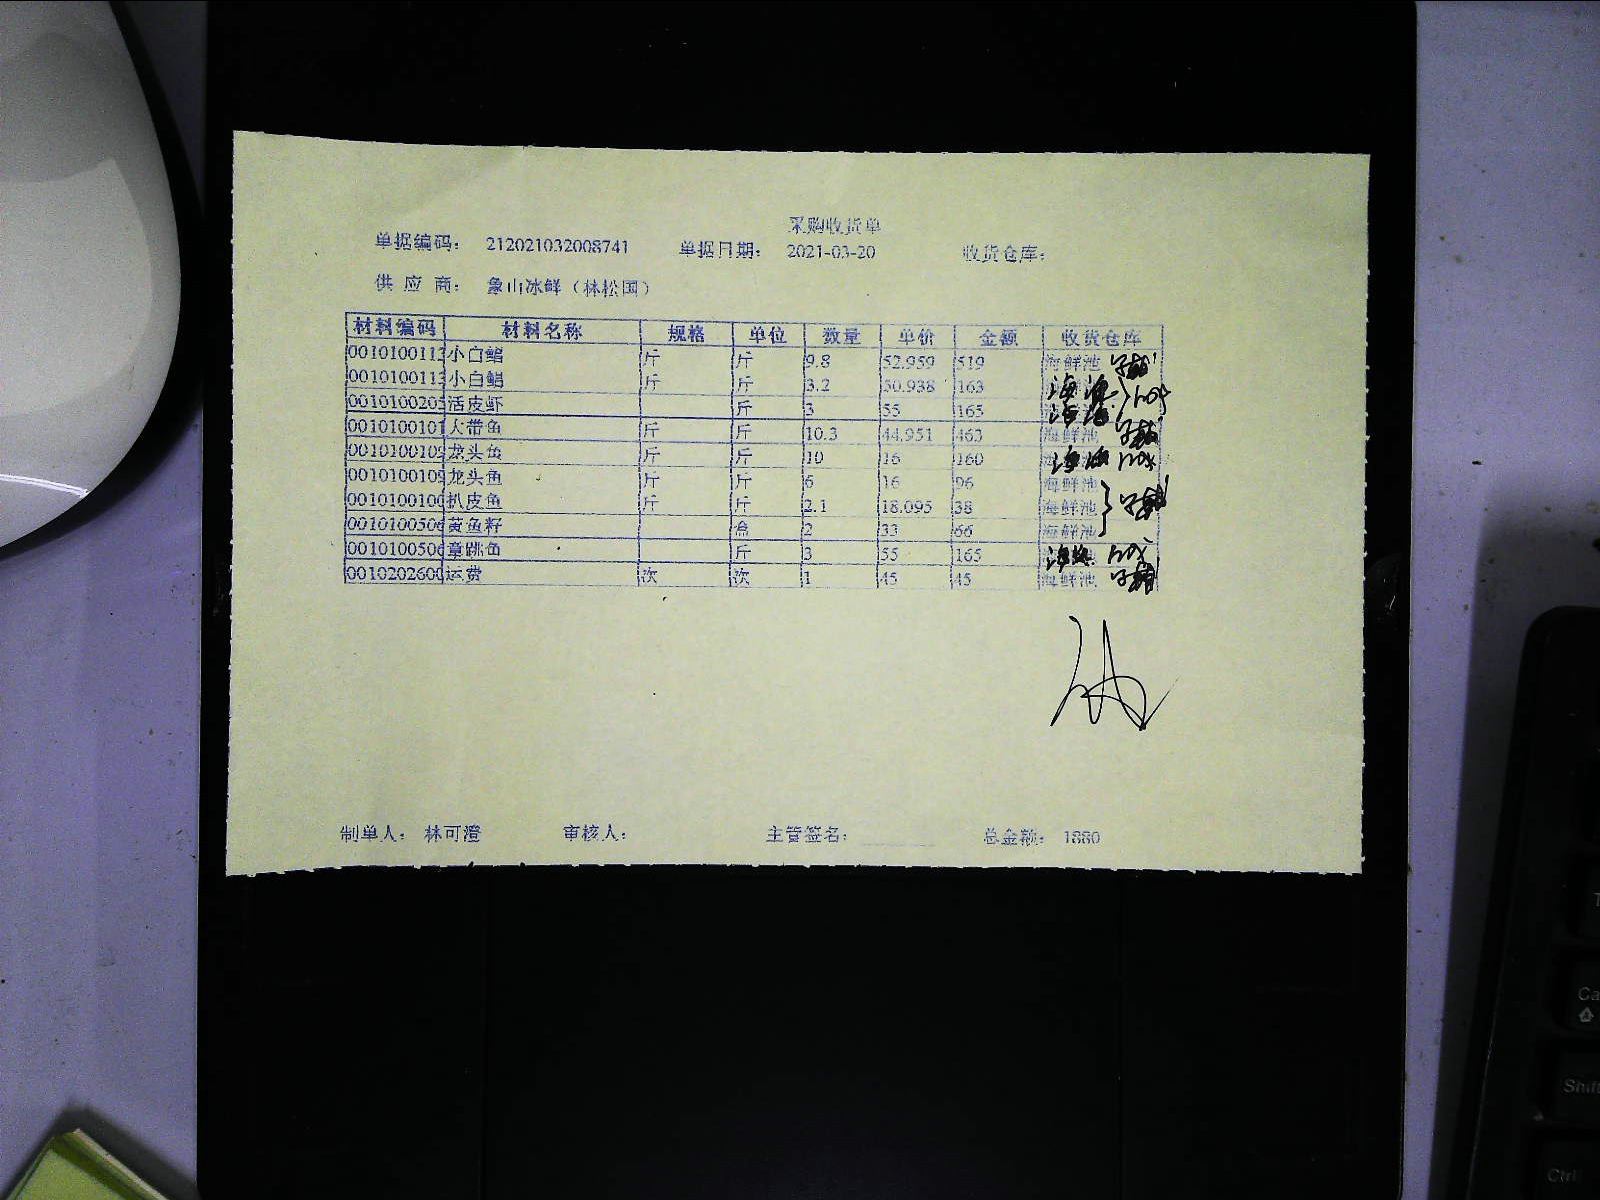 采购收货单
单据编码： 212021032008741 单据日期： 2021-03-20 收货仓库：
供 应 商： 象山冰鲜（林松国）
材料编码 材料名称 规格 单位 数量 单价 金额 收货仓库
001010011 小白鲳 斤 斤 9.8 52.959 519 海鲜池
001010011 小白鲳 斤 斤 3.2 50.938 163
001010020 活皮虾 斤 3 55 165
0010100101 大带鱼 斤 斤 10.3 44.951 463 海鲜池
001010010 龙头鱼 斤 斤 10 16 160
001010010 龙头鱼 斤 斤 6 16 96 海鲜池
001010010 扒皮鱼 斤 斤 2.1 18.095 38 海鲜池
001010050 黄鱼籽 盒 2 33 66 海鲜池
001010050 章跳鱼 斤 3 55 165
0010202600 运费 次 次 1 45 45 海鲜池
制单人： 林可澄 审核人： 主管签名： 总金额： 1880